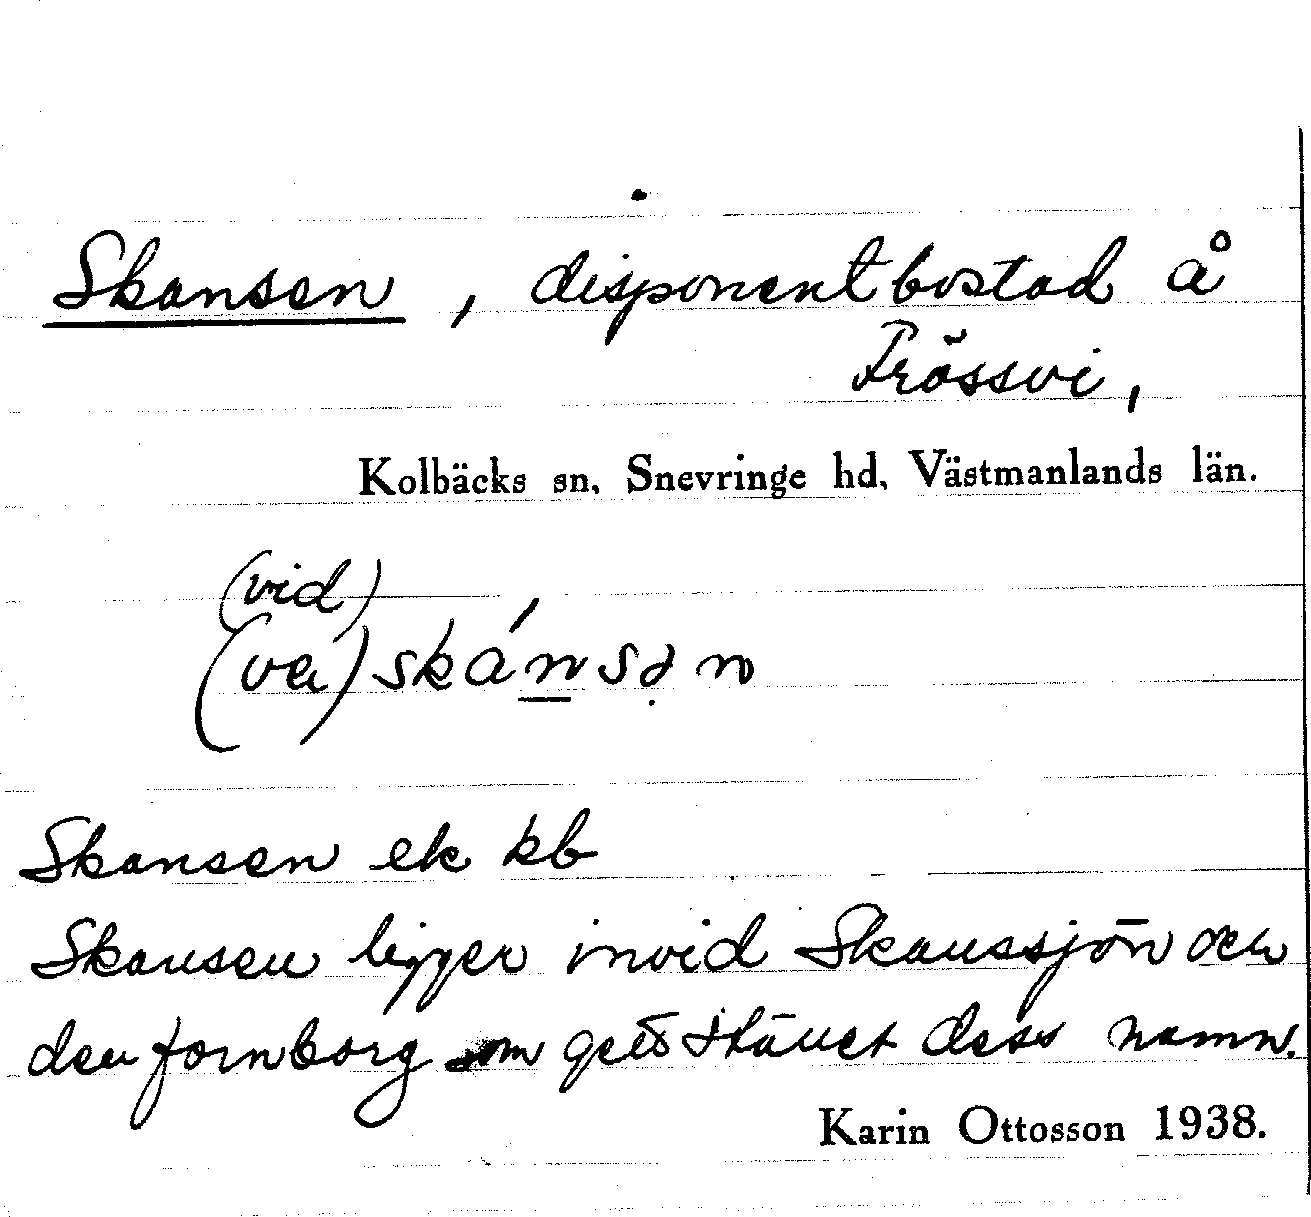 Skansen, disponentbostad å
Trössvi,
Kolbäcks sn, Snevringe hd, Västmanlands län.
(vid)
(va) skánsən
Skansen ek kb
Skansen ligger invid Skanssjön och
den fornborg som gett stället dess namn.
Karin Ottosson 1938.